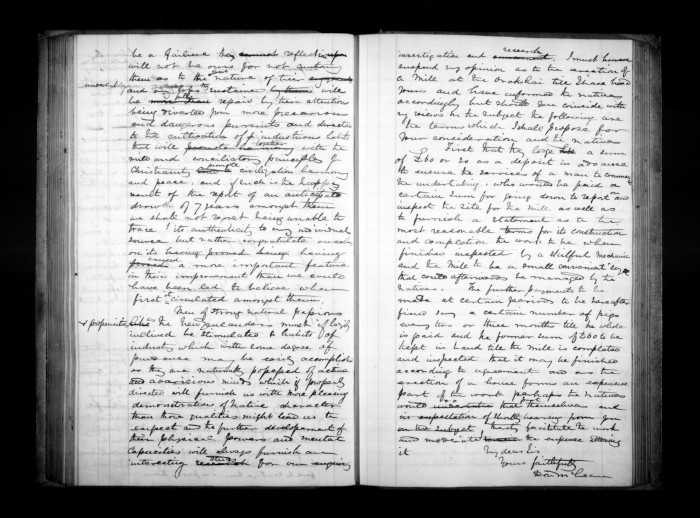 be a failure they cannot reflect upon
will not be ours for not
them as to the nature of their
and any loss sustained will
be more than repaid by their attention
being diverted from more precarious
and dangerous pursuits and directed
to the cultivation of industrious habits
that will with the
mild and conciliatory principles of
Christianity promote civilization harmony
and peace, and if such is the happy
result of the report of an anticipated
drowth of 7 years amongst them
we shall not regret being unable to
trace its authenticity to any individual
source but rather congratulate ourselves
on its having proved having
caused a more important feature
in their improvement than we could
have been led to believe when
first circulated amongst them.
Men of strong natural passions
& propensities like the New Zealanders must if largely
inclined be stimulated to habits of
industry which with some degree of
may be easily accomplished
as they are naturally possessed of active
and avaricious minds which if properly
directed will furnish us with more pleasing
demonstrations of native character
than those qualities might lead us to
expect and the further development of
their physical powers and mental
capacities will always furnish an
interesting study for our
investigation and research. I must however
suspend my opinion as to the erection of
a Mill at the till I have heard
yours and have informed the natives
accordingly but should you coincide with
my views on the subject the following are
the terms which I shall propose for
your consideration and the natives
First that they lodge a sum
of £60 or 20 as a deposit in advance
to ensure the services of a man to commence
the undertaking. who would be paid a
certain sum for going down to report on
inspect the site for the Mill as well as
to furnish a statement as to the
most reasonable terms for its construction
and completion the work to be when
finished inspected by a Millwright Mechanic
and the Mill to be a small convenient
that could afterwards be managed by the
Natives. The further payments to be
made at certain periods to be hereafter
fixed say a certain number of pigs
every two or three months till the whole
is paid and the former sum of £60 to be
kept in hand till the mill is completed
and inspected that it may be finished
according to agreement and as the
erection of a house forms an expensive
part of the work perhaps the Natives
would undertake that themselves and
in expectation of shortly hearing from you
on the subject facilitate the work
and moderate the expense attending
it My dear Sir
Yours faithfully
Donald McLean